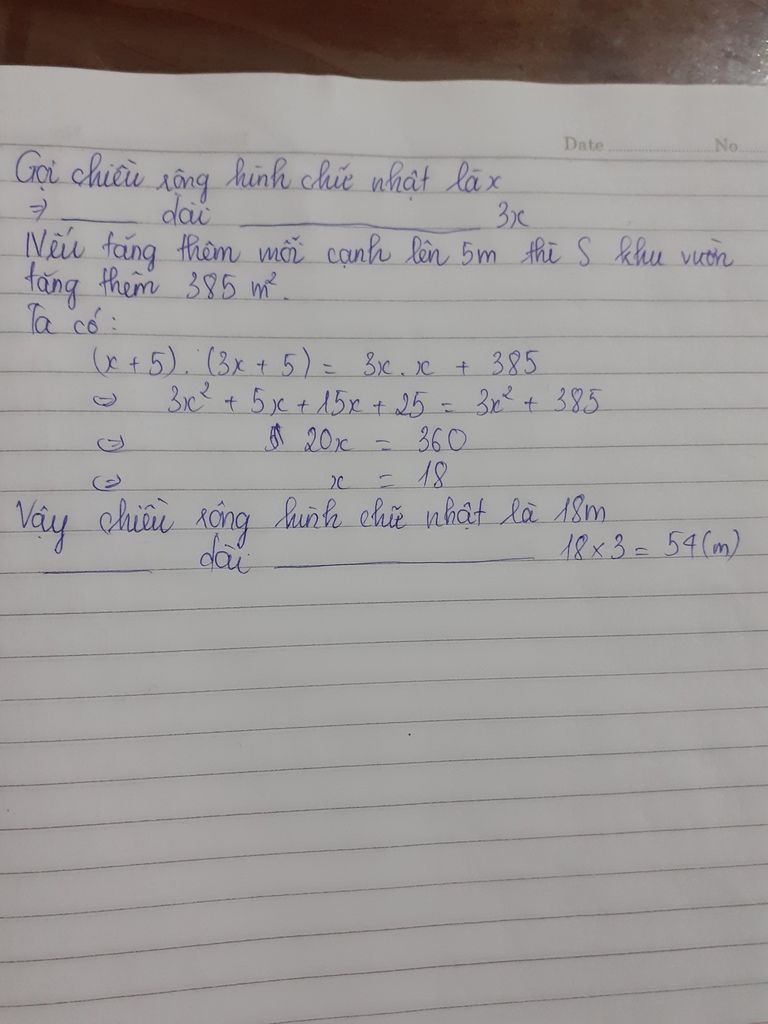 Date No
Gọi chiều rộng hình chữ nhật là x
⇒ ____ dài ____ 3x
Nếu tăng thêm mỗi cạnh lên 5m thì S khu vườn
tăng thêm 385 m².
Ta có:
(x + 5) . (3x + 5) = 3x . x + 385
⇔ 3x² + 5x + 15x + 25 = 3x² + 385
⇔ 20x = 360
⇔ x = 18
Vậy chiều rộng hình chữ nhật là 18m
____ dài ____ 18 × 3 = 54 (m)